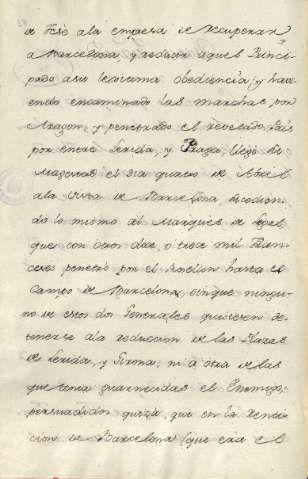 se fué a la empresa de recuperar
a Barcelona, y reducir aquel Princi-
pado a su lexitima obediencia; y havi-
endo encaminado las marchas por
Aragon, y penetrado el revelado Pais
por entre Lerida, y Fraga, llegó Su
Magestad el dia quatro de Abril
a la vista de Barcelona,
do lo mismo el Marques de
que con otros doce, o trece mil Fran-
ceses penetró por el Rosellon hasta el
Campo de Barcelona, sin que ningu-
no de estos dos Generales quisiesen de-
tenerse a la reduccion de las Plazas
de Lerida, y Girona, ni a otra de las
que tenia guarnecidas el Enemigo,
persuadidos quiza, que en la rendi-
cion de Barcelona (que era el